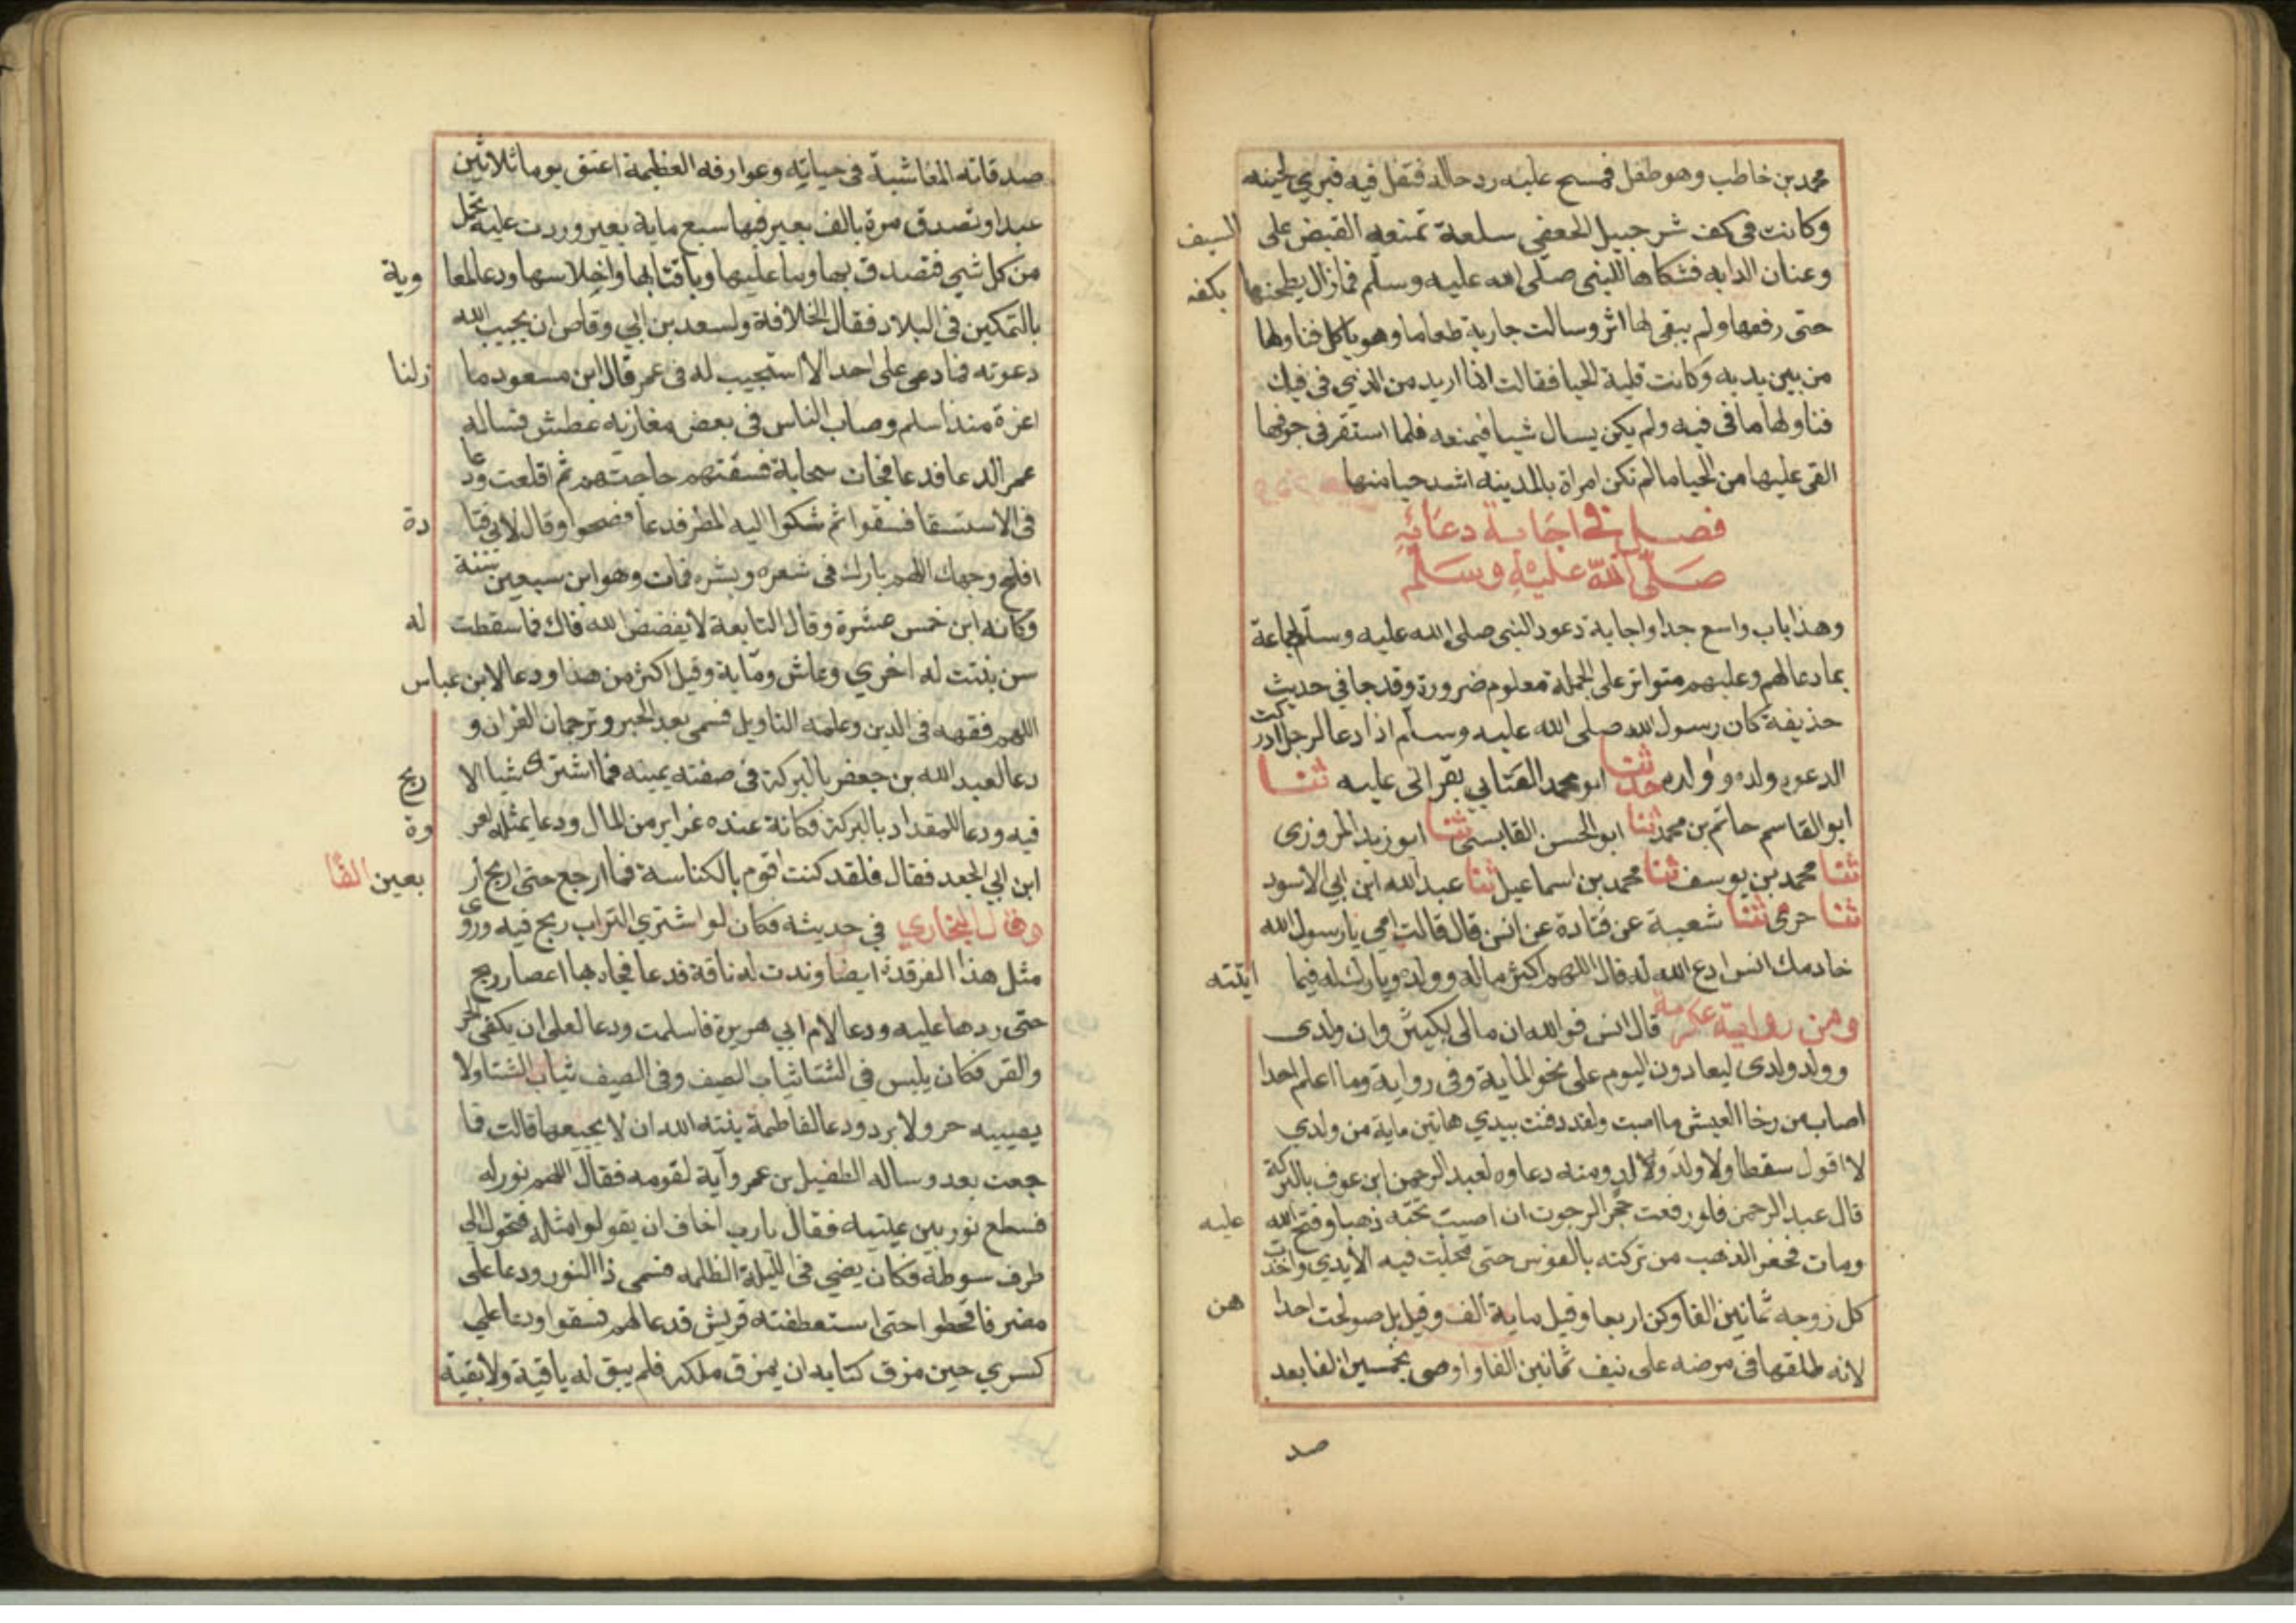 محمد بن خاطب وهو طفل فمسح عليه ودعاله فتفل فيه فبري لحينه
وكانت في كف شرحبيل الجعفي سلعة تمنعه القبض على السيف
وعنان الدابه فشكاها للنبي صلى الله عليه وسلم فمازال يطحنها بكفه
حتى رفعها ولم يبقى لها اثر وسالت جارية طعاما وهو ياكل فناولها
من بين يديه وكانت قليلة الحيا فقالت انما اريد من الذي في فيك
فناولها ما في فيه ولم يكن يسال شيا فيمنعه فلما استقر في جوفها
القى عليها من الحيا ما لم تكن امراة بالمدينه اشد حيا منها
فصل في اجابة دعائه
صلى الله عليه وسلم
وهذا باب واسع جدا واجابة دعوة النبي صلى الله عليه وسلم لجماعة
بما دعالهم وعليهم متواتر على الجملة معلوم ضرورة وقد جا في حديث
حذيفة كان رسول الله صلى الله عليه وسلم اذا دعا لرجل ادركت
الدعوه ولده وولد ولده حدثنا ابو محمد العتابي بقراتي عليه ثنا
ابو القاسم حاتم بن محمد ثنا ابو الحسن القابسي ثنا ابو زيد المروزى
ثنا محمد بن يوسف ثنا محمد بن اسماعيل ثنا عبد الله ابن ابي الاسود
ثنا حرمى ثنا شعبة عن قتادة عن انس قال قالت امي يا رسول الله
خادمك انس ادع الله له قال اللهم اكثر ماله وولده وبارك له فيما ايتته
ومن رواية عكرمة قال انس فوالله ان مالى لكثير وان ولدى
وولد ولدى ليعادون اليوم على نحو الماية وفى رواية وما اعلم احدا
اصاب من رخا العيش ما اصبت ولقد دفنت بيدي هاتين ماية من ولدي
لا اقول سقطا ولا ولد ولد ومنه دعاوه لعبد الرحمن ابن عوف بالبركة
قال عبد الرحمن فلو رفعت حجرا لرجوت ان اصيب تحته ذهبا وفتح الله عليه
ومات فحفر الذهب من تركته بالفوس حتى مجلت فيه الايدي واخذت
كل زوجه ثمانين الفا وكن اربعا وقيل ماية الف وقيل بل صولحت احداهن
لانه طلقها في مرضه على نيف ثمانين الفا واوصى بخمسين الفا بعد
صد
صدقاته الفاشية في حياته وعوارفه العظيمة اعتق يوما ثلاثين
عبدا وتصدق مرة بالف بعير فيها سبع ماية بعير وردت عليه تحمل
من كل شي فتصدق بها وبما عليها وباقتابها واحلاسها ودعا لمعاوية
بالتمكين في البلاد فقال الخلافة ولسعد بن ابي وقاص ان يجيب الله
دعوته فما دعى على احد الا استجيب له في عمر قال ابن مسعود ما زلنا
اعزة منذ اسلم وصاب الناس في بعض مغازيه عطش فساله
عمر الدعا فدعا فجات سحابة فسقتهم حاجتهم ثم اقلعت ودعا
في الاستسقا فسقوا ثم شكوا اليه المطر فدعا فصحوا وقال لابي قتادة
افلح وجهك اللهم بارك في شعره وبشره فمات وهو ابن سبعين سنة
وكانه ابن خمس عشرة وقال النابغة لا يفضض الله فاك فما سقطت له
سن بنتت له اخري وعاش وماية وقيل اكثر من هذا ودعا لابن عباس
اللهم فقهه في الدين وعلمه التاويل فسمى بعد الحبر وترجمان القران و
دعا لعبد الله بن جعفر بالبركة في صفته يمينه فما اشترى شيا الا ربح
فيه ودعا للمقداد بالبركة فكانة عنده غراير من المال ودعا بمثله لعروة
ابن ابي الجعد فقال فلقد كنت اقوم بالكناسة فما ارجع حتى اربح اربعين الفا
وقال البخاري في حديثه فكان لو اشتري التراب ربح فيه وروى
مثل هذا لغرقدة ايضا وندت له ناقة فدعا فجاه بها اعصار ريح
حتى ردها عليه ودعا لام ابي هريرة فاسلمت ودعا لعلى ان يكفى الحر
والقر فكان يلبس في الشتا ثياب الصيف وفي الصيف ثياب الشتا ولا
يصيبه حر ولا برد ودعا لفاطمة بنته الله ان لا يجيعها قالت فما
جعت بعد وساله الطفيل بن عمرو آية لقومه فقال اللهم نور له
فسطع نور بين عينيه فقال يا رب اخاف ان يقولوا مثله فتحول الي
طرف سوطه فكان يضي في الليلة الظلمه فسمى ذا النور ودعا على
مضر فاقحطوا حتى استعطفته قريش فدعا لهم فسقوا ودعا علي
كسري حين مزق كتابه ان يمزق ملكه فلم يبق له باقية ولا بقية